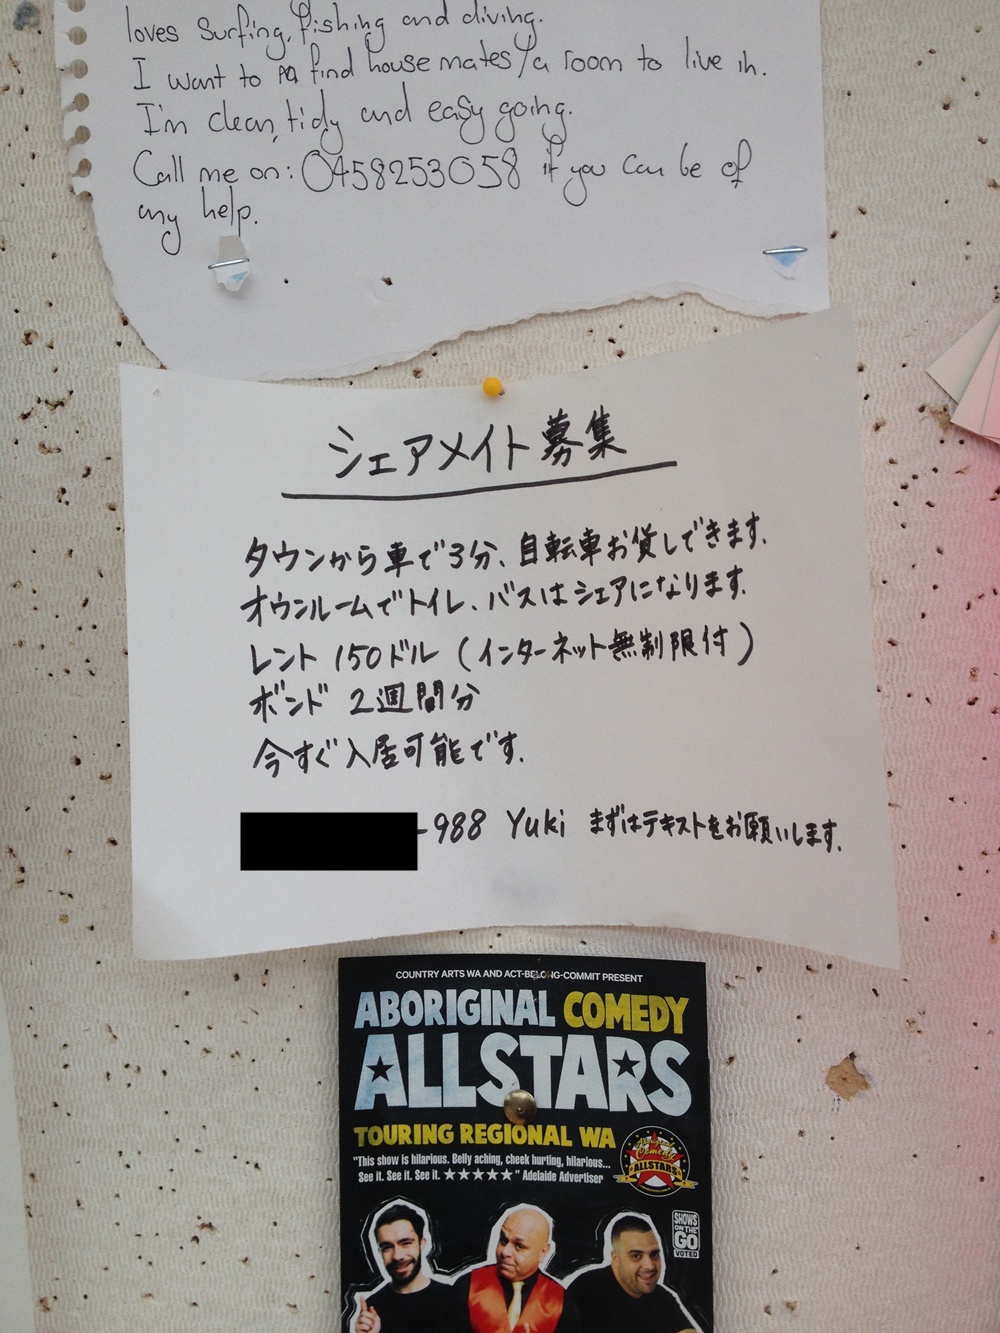 loves surfing, fishing and diving.
I want to find house mates/a room to live in.
I'm clean, tidy and easy going.
Call me on: 0458253058 if you can be of
any help.
シェアメイト募集
タウンから車で3分、自転車お貸しできます。
オウンルームでトイレ、バスはシェアになります。
レント 150ドル (インターネット無制限付)
ボンド 2週間分
今すぐ入居可能です。
-988 Yuki まずはテキストをお願いします。
COUNTRY ARTS WA AND ACT-BELONG-COMMIT PRESENT
ABORIGINAL COMEDY
ALLSTARS
TOURING REGIONAL WA
"This show is hilarious. Belly aching, cheek hurting, hilarious...
See it. See it. See it. ★★★★★" Adelaide Advertiser
Aboriginal
Comedy
ALLSTARS
SHOWS
ON THE
GO
VOTED